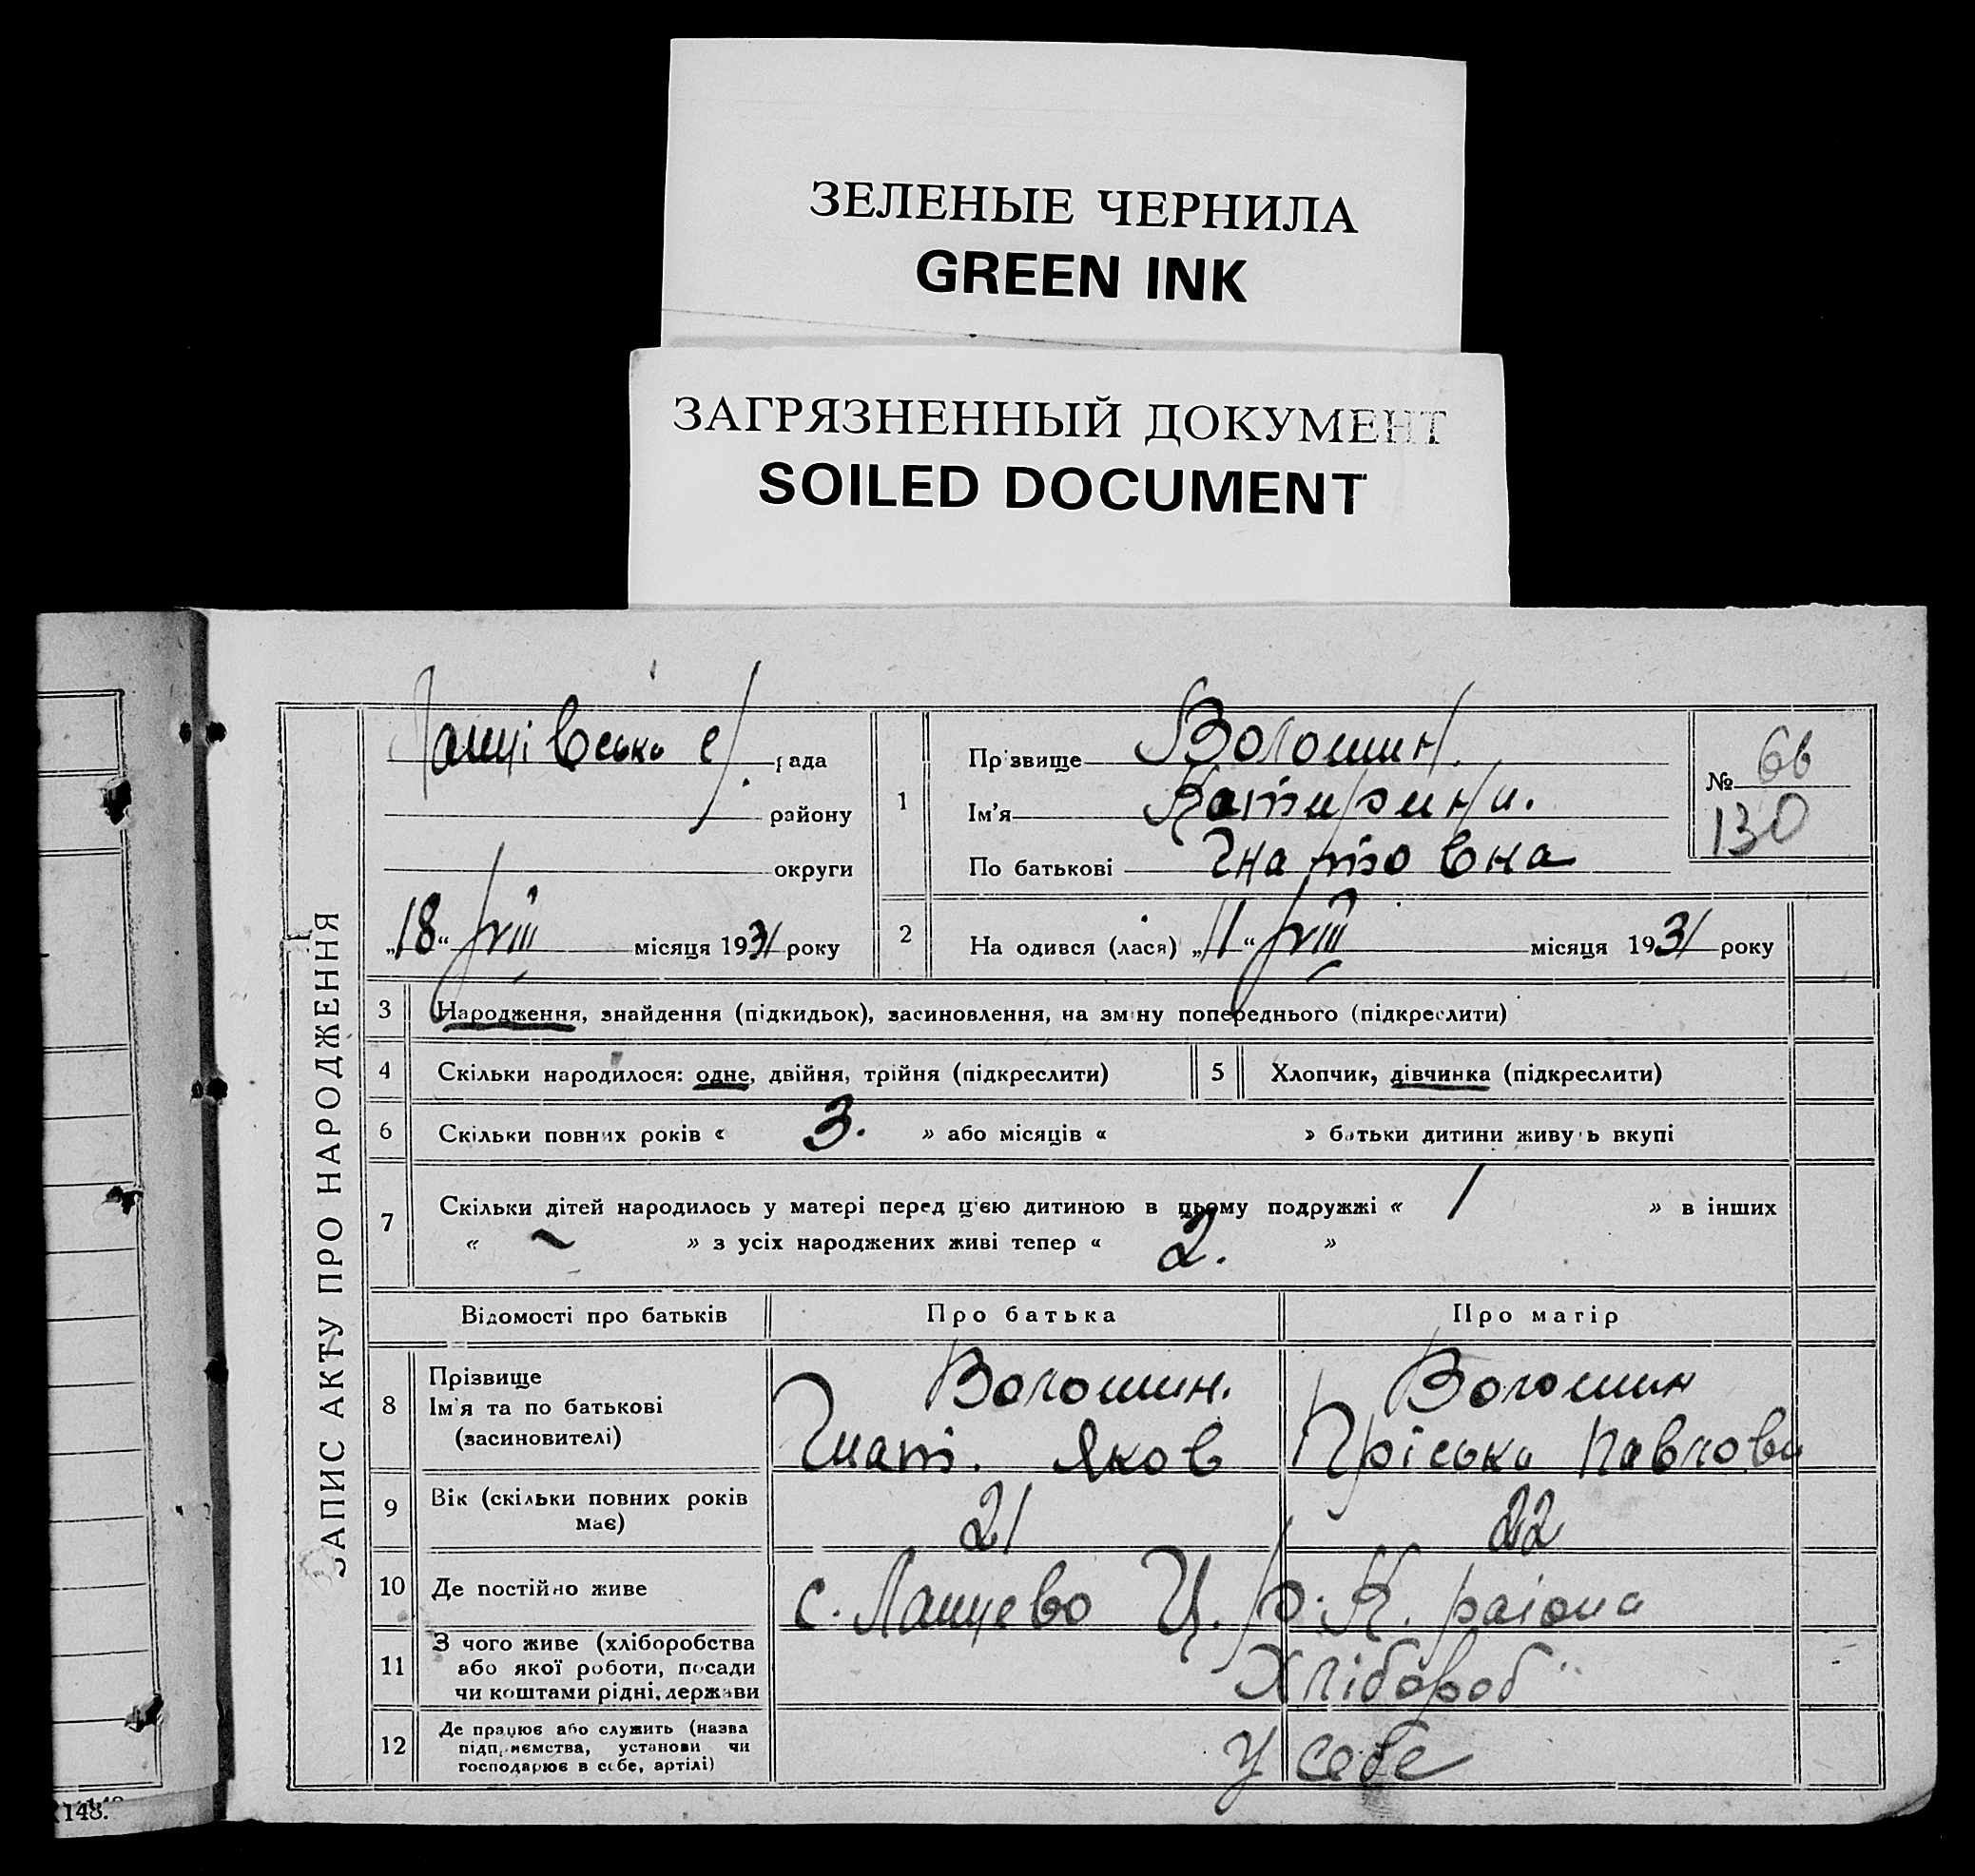 ЗЕЛЕНЫЕ ЧЕРНИЛА
GREEN INK
ЗАГРЯЗНЕННЫЙ ДОКУМЕНТ
SOILED DOCUMENT
ЗАПИС АКТУ ПРО НАРОДЖЕННЯ
рада
району
округи
„18“ VIII місяця 1931 року
1
Прізвище Волошин.
Ім'я Катирина.
По батькові Гнатовна
№ 66
130
2 На одився (лася) „11“ VIII місяця 1931 року
3 Народження, знайдення (підкидьок), засиновлення, на зміну попереднього (підкреслити)
4 Скільки народилося: одне, двійня, трійня (підкреслити) 5 Хлопчик, дівчинка (підкреслити)
6 Скільки повних років « 3. » або місяців « » батьки дитини живуть вкупі
7 Скільки дітей народилось у матері перед ц'єю дитиною в цьому подружжі « 1 » в інших
« ~ » з усіх народжених живі тепер « 2. »
Відомості про батьків Про батька Про матір
8 Прізвище
Ім'я та по батькові
(засиновителі)
Волошин. Волошин
Гнат. Яков Пріська Павлова
9 Вік (скільки повних років має) 21 22
10 Де постійно живе с. Лащево Ц. р. К. раіона
11 З чого живе (хліборобства
або якої роботи, посади
чи коштами рідні, держави
Хлібороб
12 Де працює або служить (назва
підприємства, установи чи
господарює в себе, артілі)
у себе
148.